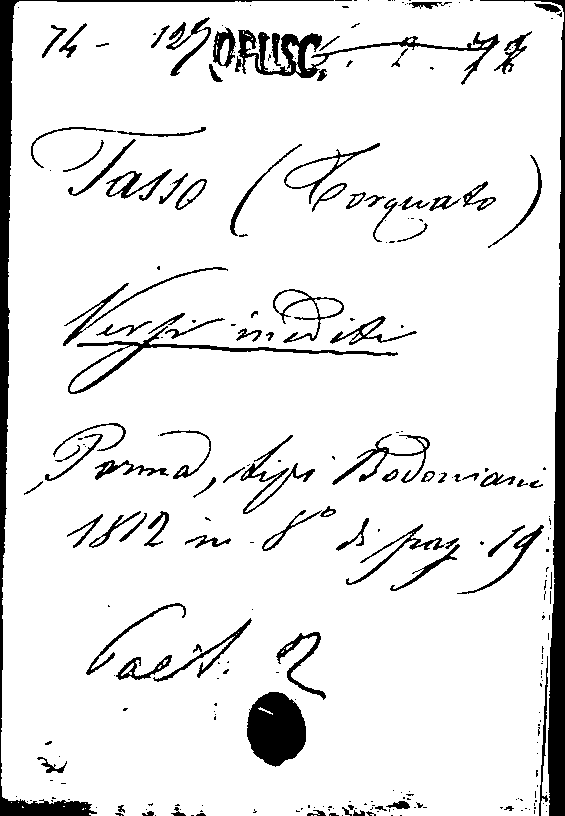 74 - 127 OPUSC. 2. 72
Tasso (Torquato)
Versi inediti
Parma, tipi Bodoniani
1812 in 8° di pag. 19
2